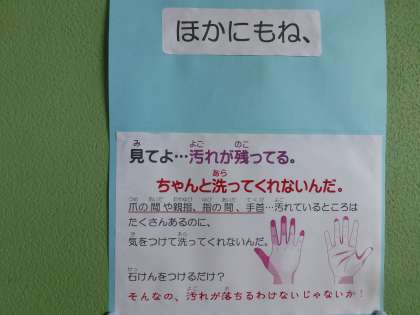 ほかにもね、
見てよ…汚れが残ってる。
ちゃんと洗ってくれないんだ。
爪の間や親指、指の間、手首…汚れているところは
たくさんあるのに、
気をつけて洗ってくれないんだ。
石けんをつけるだけ？
そんなの、汚れが落ちるわけないじゃないか！